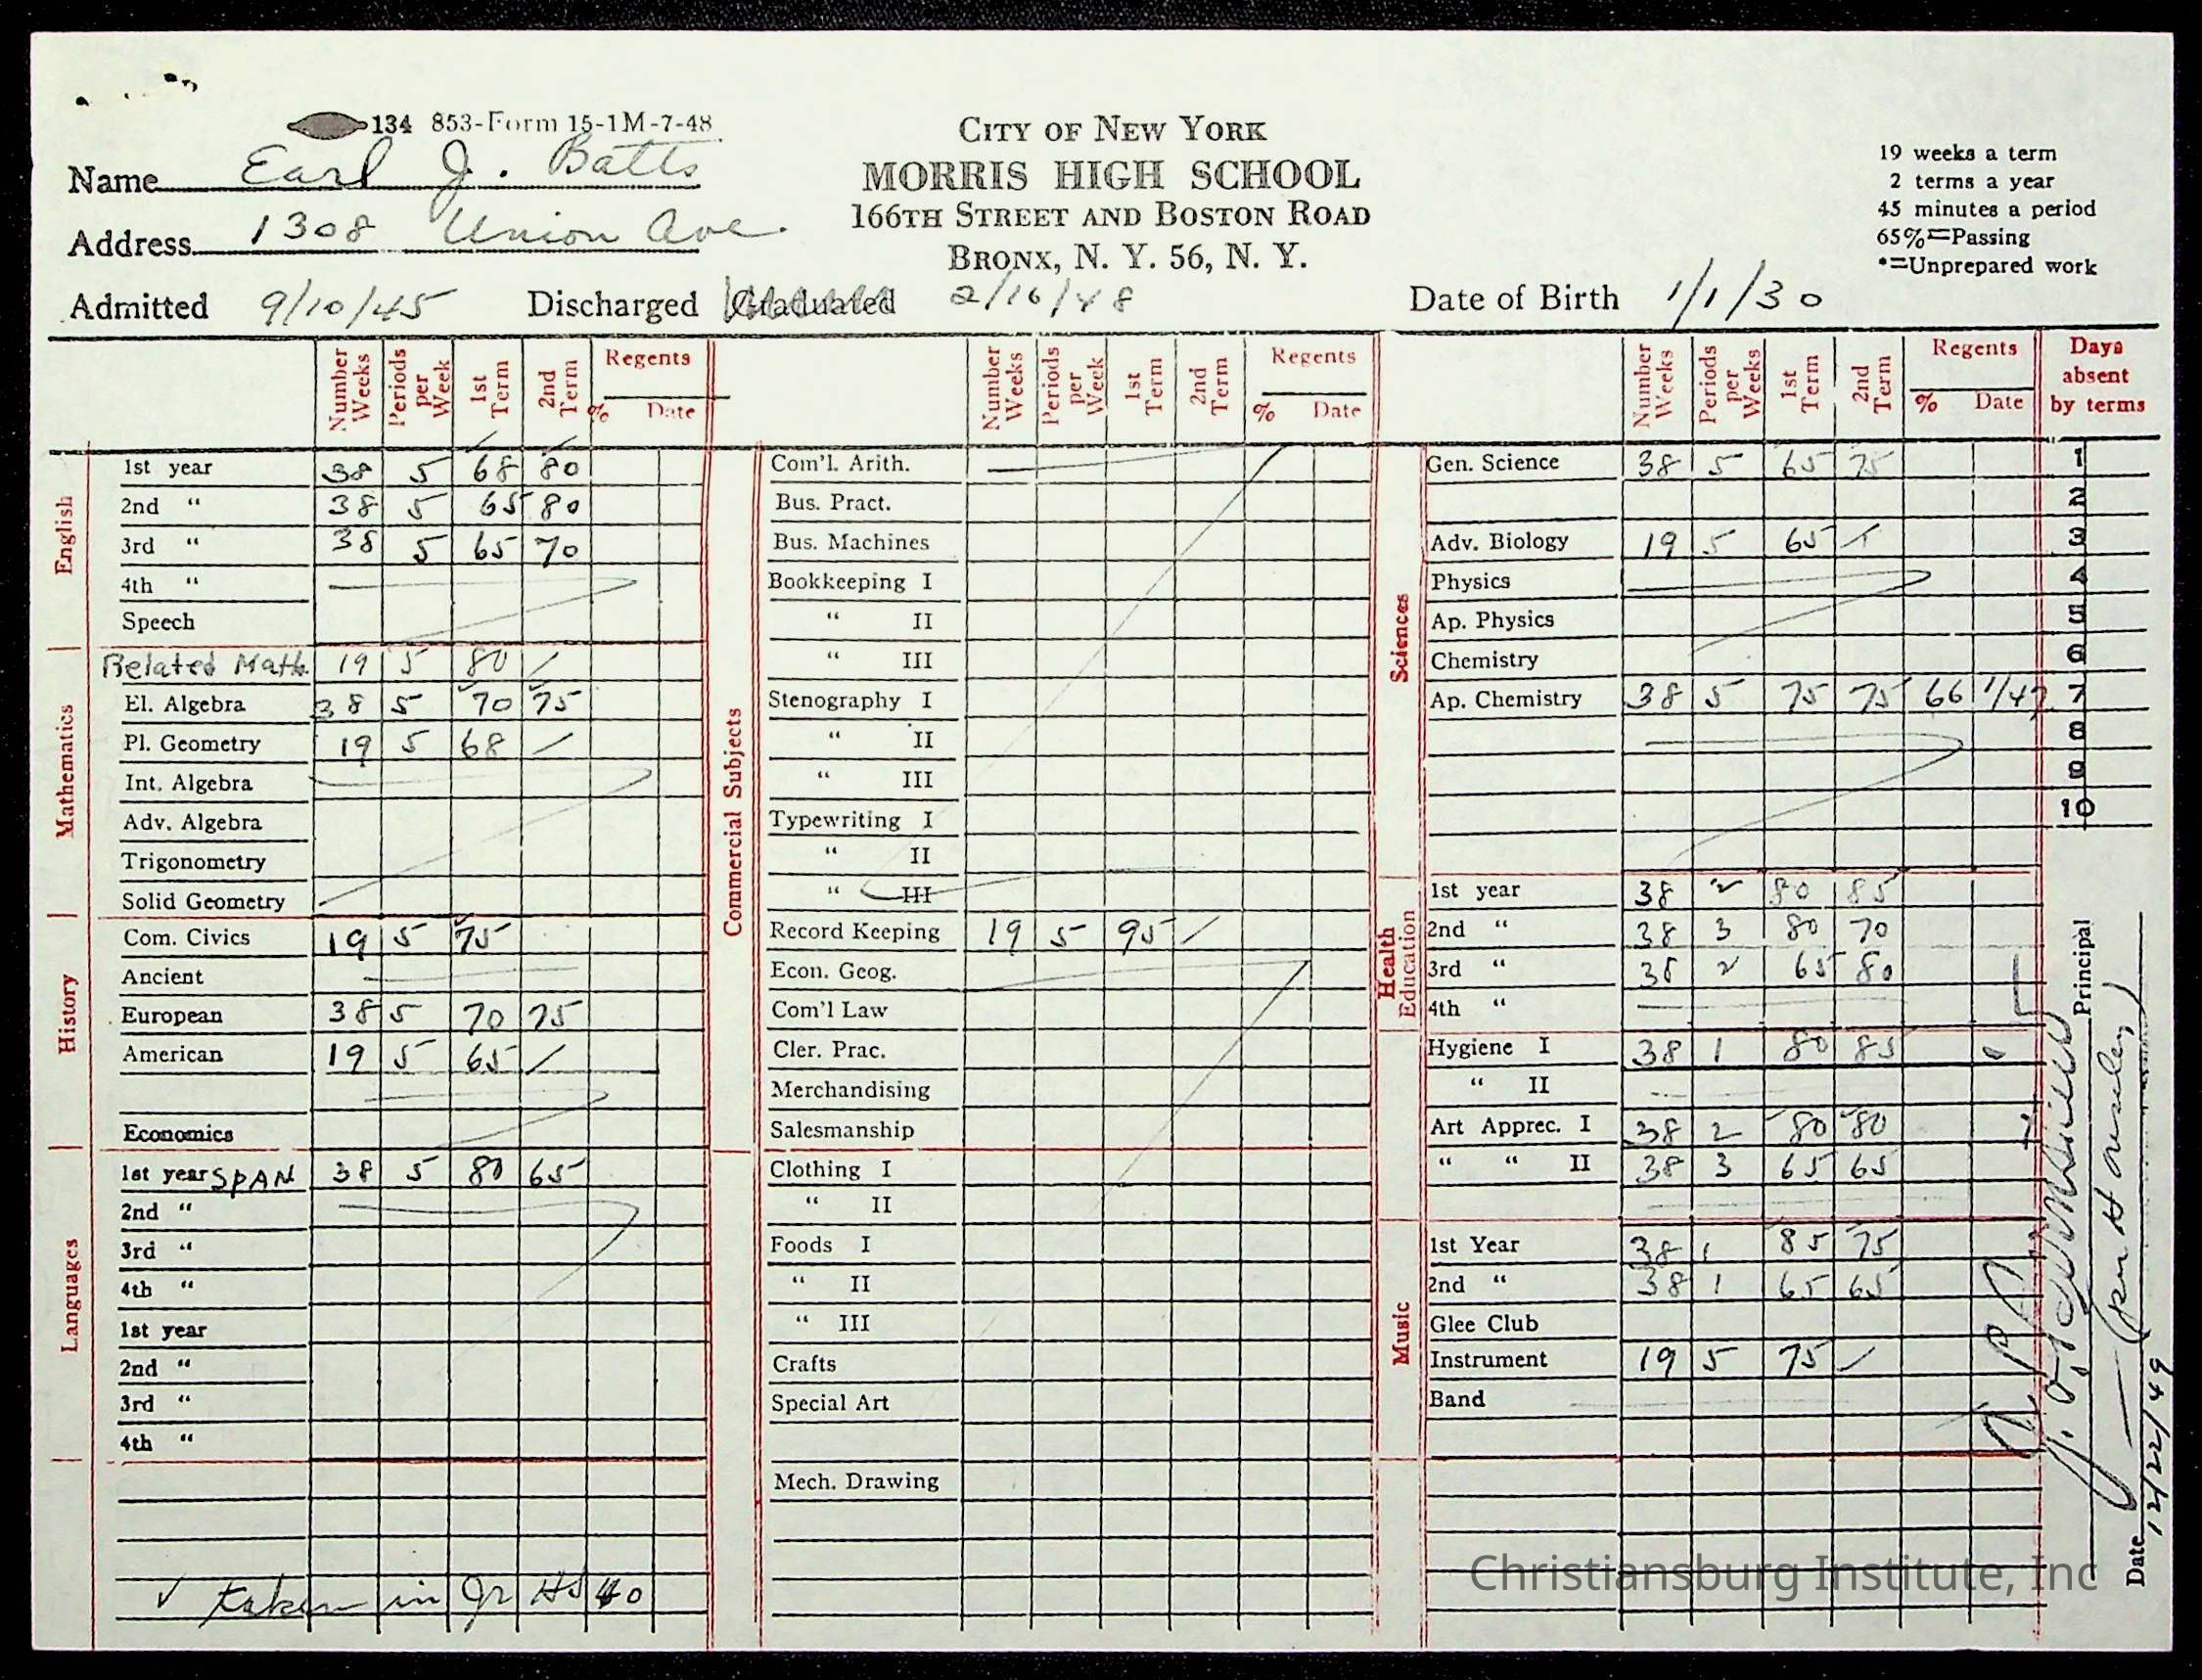 134 853-Form 15-1M-7-48
Name Earl J. Batts
Address 1308 Union Ave.
CITY OF NEW YORK
MORRIS HIGH SCHOOL
166TH STREET AND BOSTON ROAD
BRONX, N. Y. 56, N. Y.
19 weeks a term
2 terms a year
45 minutes a period
65%=Passing
*=Unprepared work
Admitted 9/10/45 Discharged Graduated 2/16/48 Date of Birth 1/1/30
Number Weeks Periods per Week 1st Term 2nd Term Regents % Date
English
1st year 38 5 68 80
2nd “ 38 5 65 80
3rd “ 38 5 65 70
4th “
Speech
Mathematics
Related Math. 19 5 80 /
El. Algebra 38 5 70 75
Pl. Geometry 19 5 68 /
Int. Algebra
Adv. Algebra
Trigonometry
Solid Geometry
History
Com. Civics 19 5 75
Ancient
European 38 5 70 75
American 19 5 65 /
Economics
Languages
1st year SPAN 38 5 80 65
2nd “
3rd “
4th “
1st year
2nd “
3rd “
4th “
✓ taken in Jr HS 40
Number Weeks Periods per Week 1st Term 2nd Term Regents % Date
Commercial Subjects
Com'l. Arith.
Bus. Pract.
Bus. Machines
Bookkeeping I
“ II
“ III
Stenography I
“ II
“ III
Typewriting I
“ II
“ III
Record Keeping 19 5 95 /
Econ. Geog.
Com'l Law
Cler. Prac.
Merchandising
Salesmanship
Clothing I
“ II
Foods I
“ II
“ III
Crafts
Special Art
Mech. Drawing
Number Weeks Periods per Weeks 1st Term 2nd Term Regents % Date
Sciences
Gen. Science 38 5 65 75
Adv. Biology 19 5 65
Physics
Ap. Physics
Chemistry
Ap. Chemistry 38 5 75 75 66 1/47
Health Education
1st year 38 2 80 85
2nd “ 38 3 80 70
3rd “ 38 2 65 80
4th “
Hygiene I 38 1 80 85
“ II
Art Apprec. I 38 2 80 80
“ “ II 38 3 65 65
Music
1st Year 38 1 85 75
2nd “ 38 1 65 65
Glee Club
Instrument 19 5 75 /
Band
Days absent by terms
1
2
3
4
5
6
7
8
9
10
Principal
Date 12/22/49
Christiansburg Institute, Inc